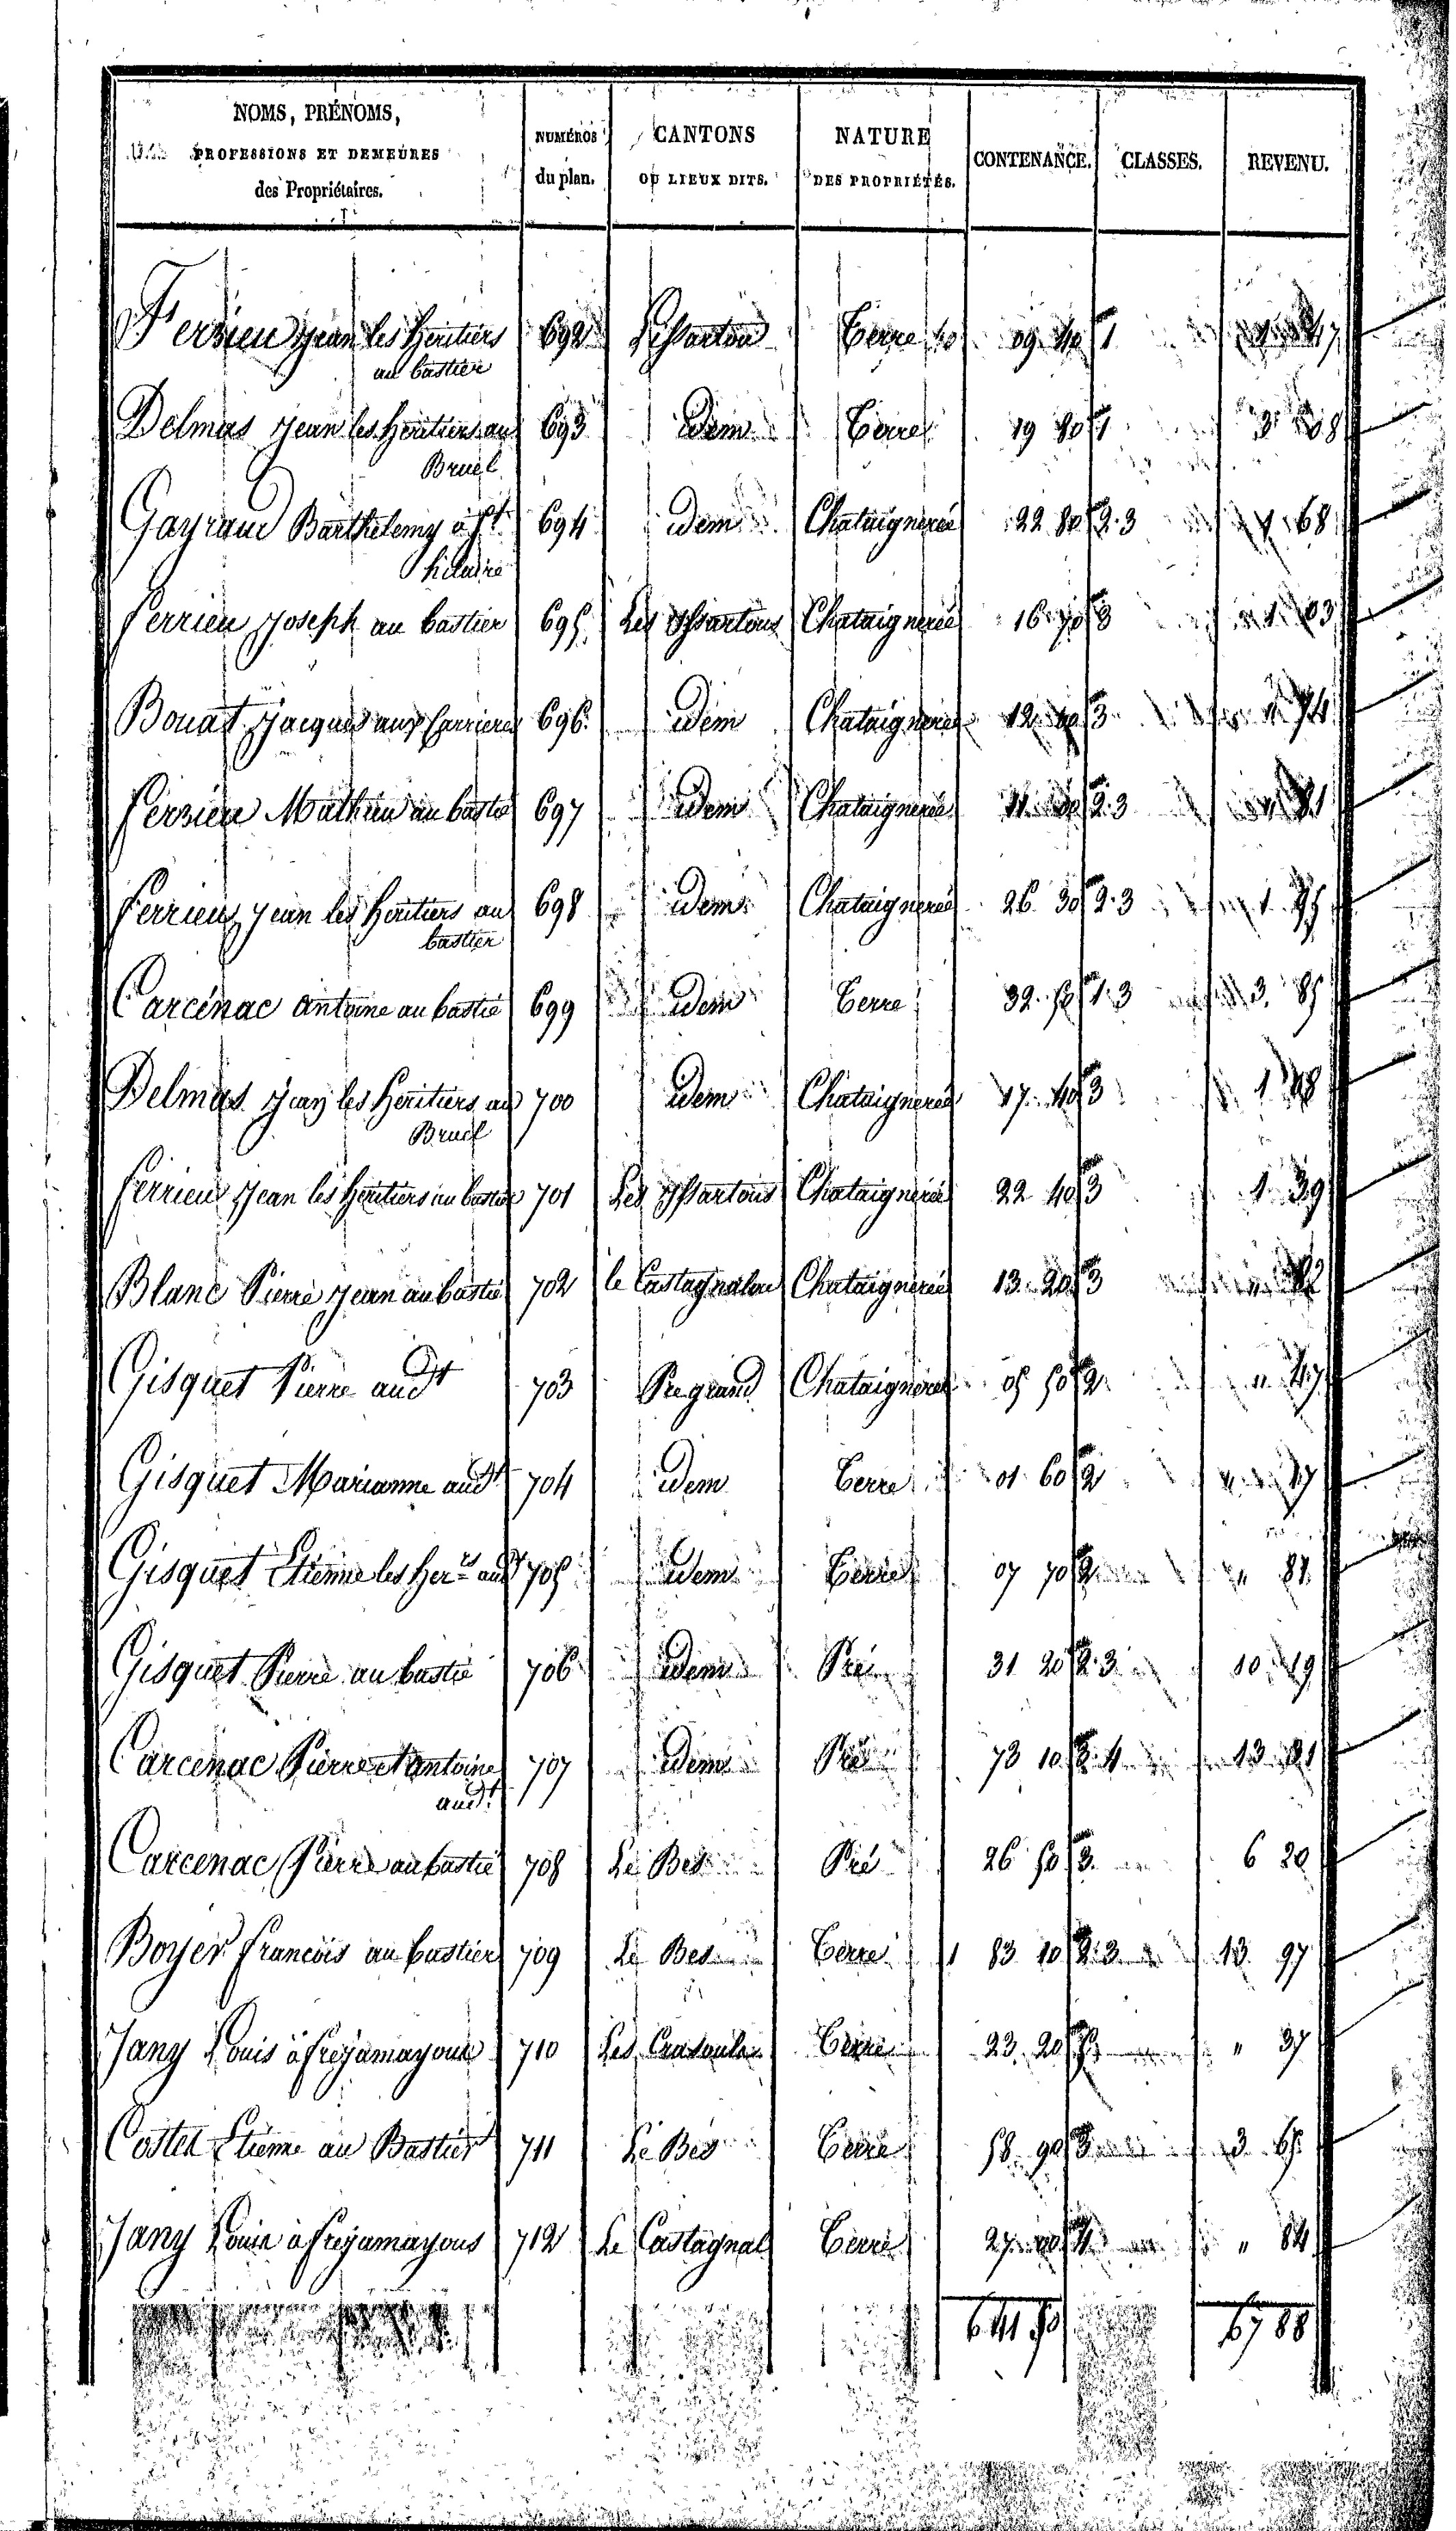 NOMS, PRÉNOMS, PROFESSIONS ET DEMEURES des Propriétaires. NUMÉROS du plan. CANTONS OU LIEUX DITS. NATURE DES PROPRIÉTÉS. CONTENANCE. CLASSES. REVENU.
Ferrieu Jean les Heritiers 692 Terre 09 40 1 47
au bastier
Delmas Jean les Heritiers au 693 idem Terre 19 80 1 3 08
Bruel
Gayraud Barthelemy à St 694 idem Chataigneréé 22 80 2.3 1 68
hilaire
ferrieu Joseph au bastier 695 Les yssartous Chataigneréé 16 70 3 1 03
Bouat Jacques aux Carrieres 696 idem Chataigneréé 12 3 " 74
ferrieu Mathieu au bastié 697 idem Chataigneréé 11 2.3 " 81
ferrieu Jean les Heritiers au 698 idem Chataigneréé 26 30 2.3 1 95
bastier
Carcénac antoine au bastié 699 idem Terre 32 50 1.3 3 85
Delmas Jean les Heritiers au 700 idem Chataigneréé 17 40 3 1 08
Bruel
ferrieu Jean les Heritiers au bastier 701 Les yssartous Chataigneréé 22 40 3 1 39
Blanc Pierre Jean au bastié 702 le Chataigneréé 13 20 3 " 82
Gisquet Pierre audt 703 Pregrand Chataigneréé 05 50 2 " 47
Gisquet Marianne audt 704 idem Terre 01 60 2 " 17
Gisquet Etienne les Heres audt 705 idem Terre 07 70 2 " 81
Gisquet Pierre au bastié 706 idem Pré 31 20 2.3 10 19
Carcenac Pierre et antoine 707 idem Pré 73 10 3.4 13 81
audt
Carcenac Pierre au bastié 708 Le Bes Pré 26 50 3 6 20
Boyer francois au bastier 709 Le Bes Terre 1 83 10 2.3 13 97
Jany Louis à frejamayous 710 Les Terre 23 20 5 " 37
Costes Etienne au Bastier 711 Le Bes Terre 58 90 3 3 65
Jany Louis à frejamayous 712 Le Castagnal Terre 27 4 " 84
6 41 50 67 88